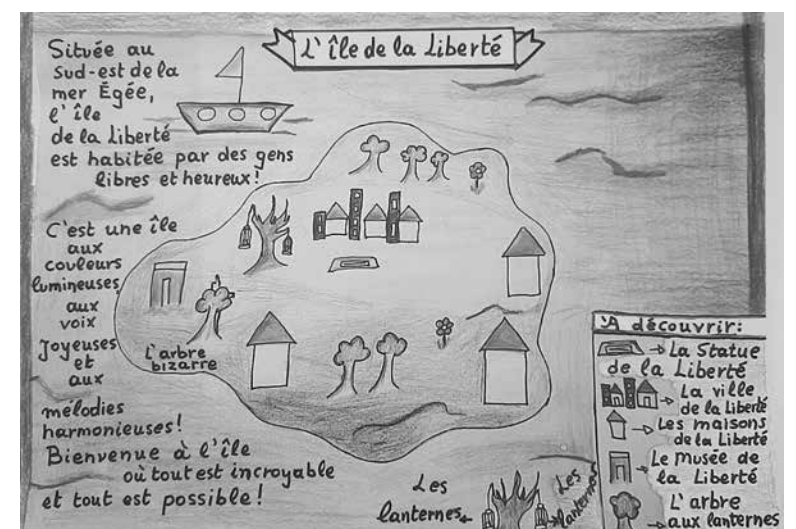 L'île de la Liberté
Située au
Sud-est de la
mer Égée,
l'île
de la Liberté
est habitée par des gens
libres et heureux!
C'est une île
aux
couleurs
lumineuses
aux
voix
Joyeuses
et
aux
mélodies
harmonieuses!
Bienvenue à l'île
où tout est incroyable
et tout est possible!
L'arbre
bizarre
Les
lanternes
Les
lanternes
A découvrir:
La Statue
de la Liberté
La ville
de la Liberté
Les maisons
de la Liberté
Le Musée de
la Liberté
L'arbre
aux lanternes